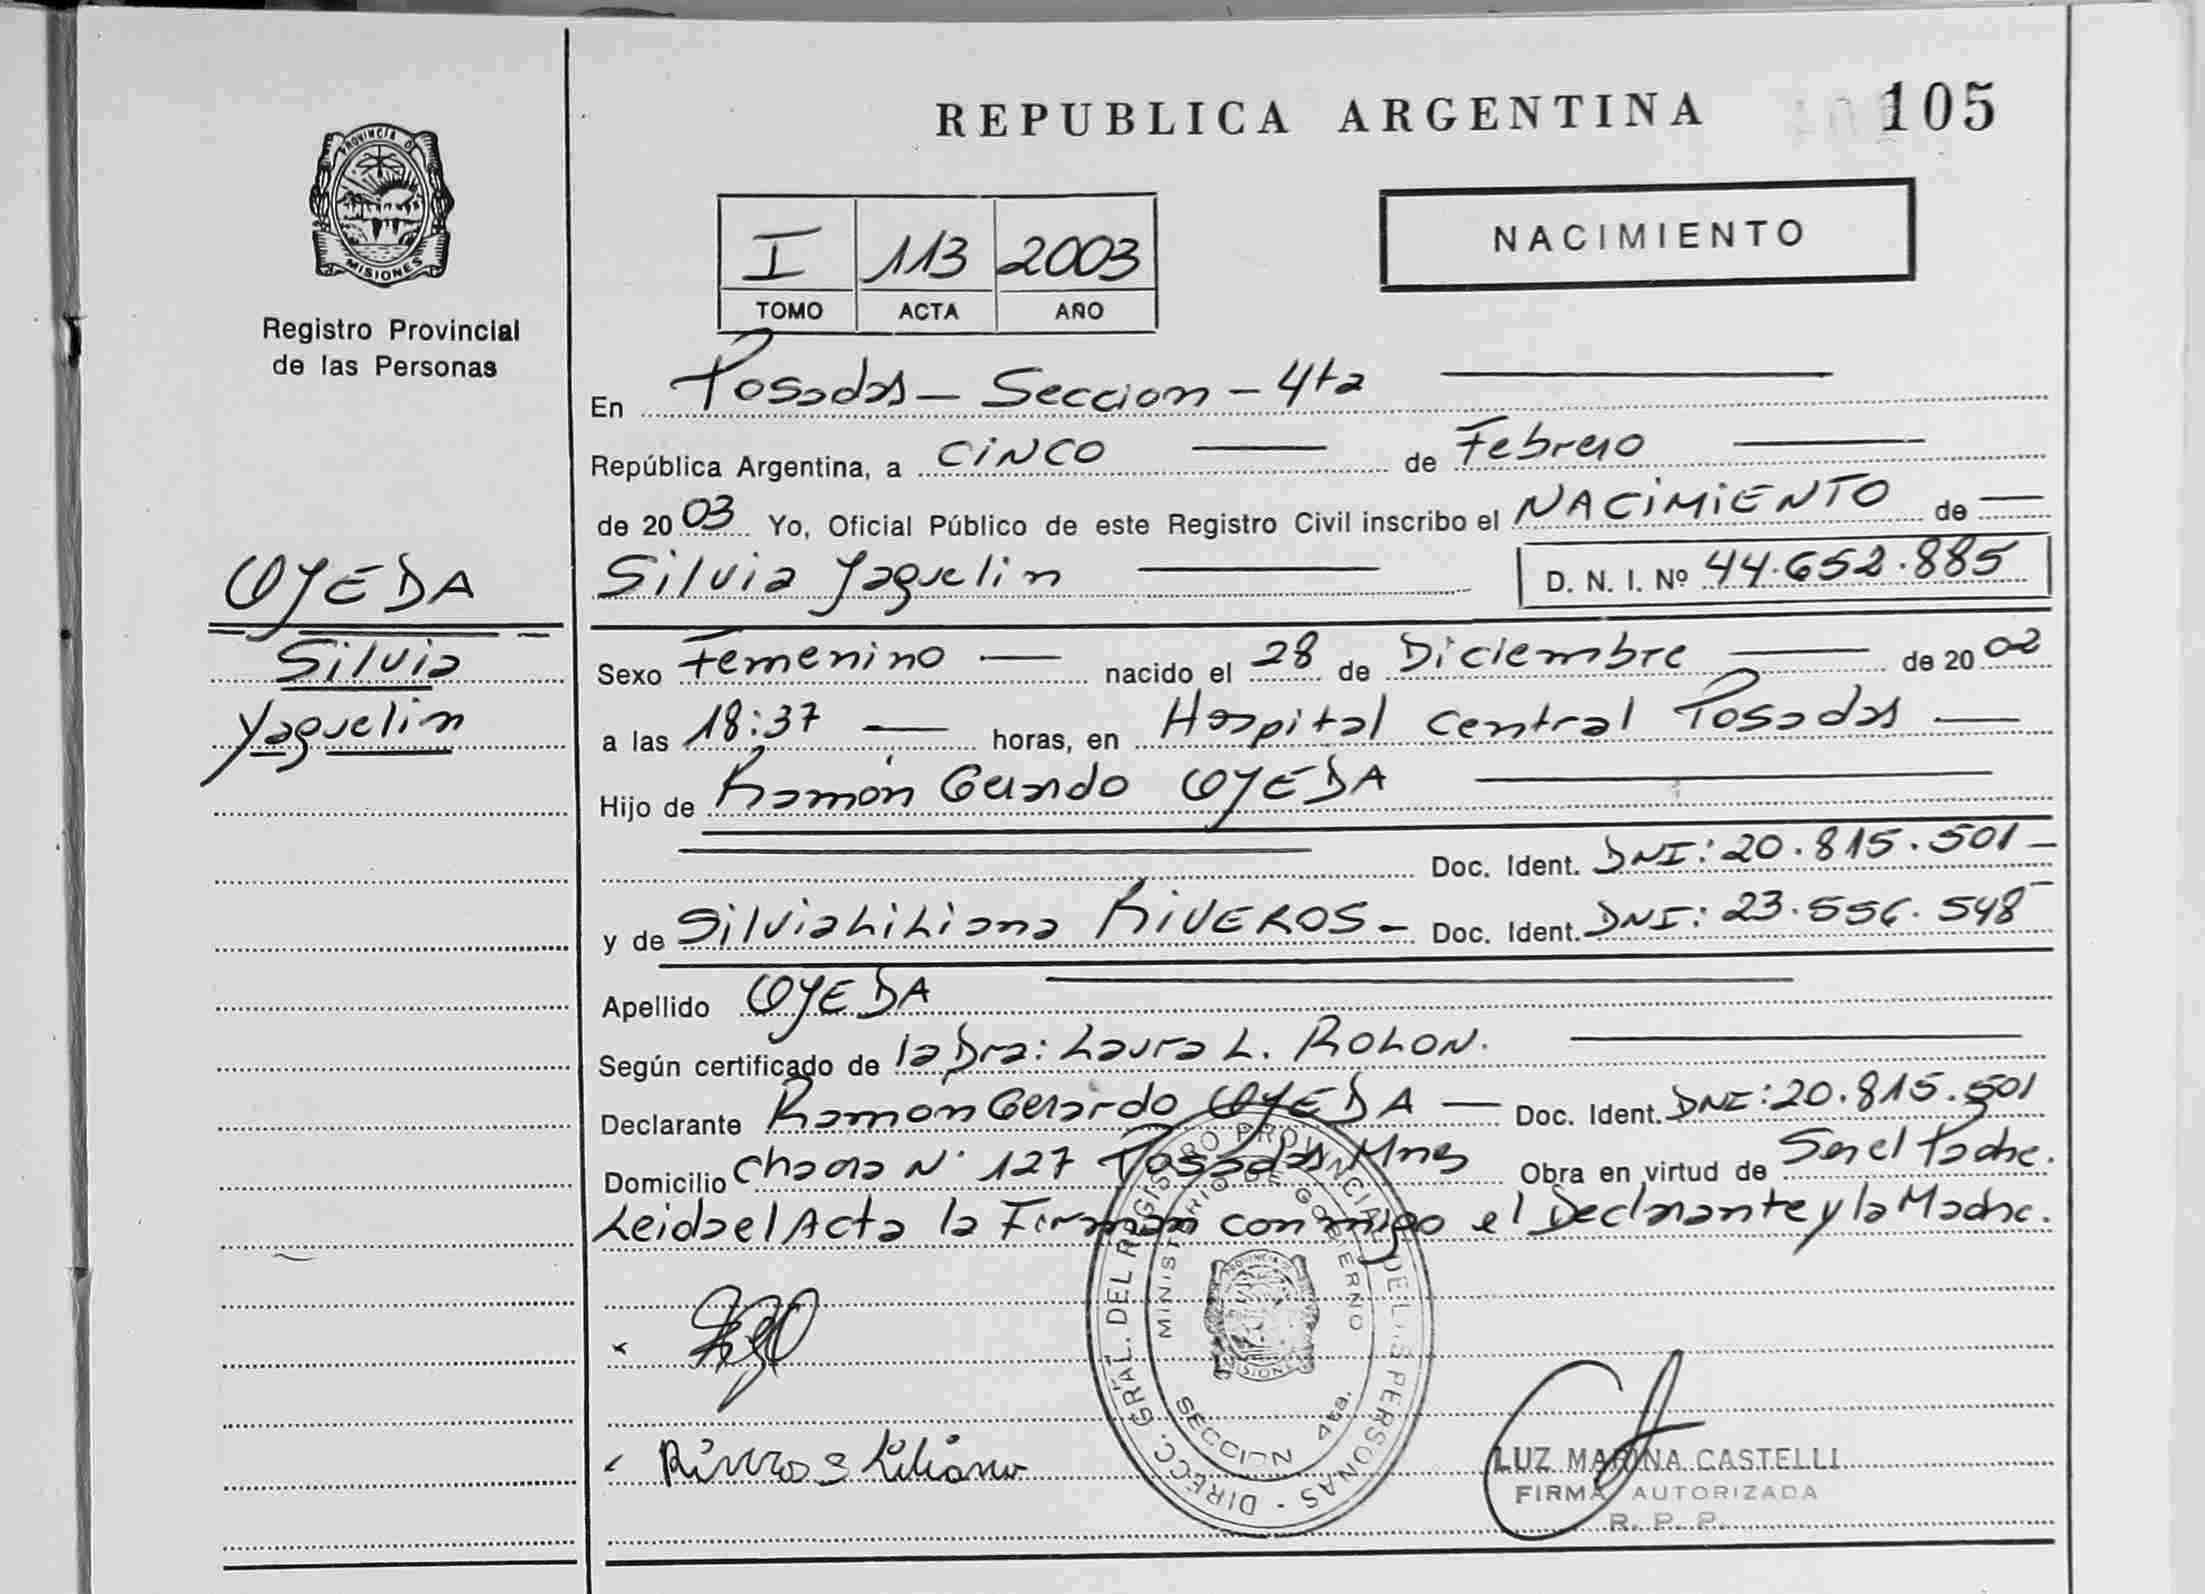 REPUBLICA ARGENTINA 105
PROVINCIA DE
MISIONES
Registro Provincial
de las Personas
I 113 2003
TOMO ACTA AÑO
NACIMIENTO
En Posadas - Seccion - 4ta
República Argentina, a CINCO de Febrero
de 2003 Yo, Oficial Público de este Registro Civil inscribo el NACIMIENTO de
Silvia Yaquelin D. N. I. Nº 44.652.885
OJEDA
Silvia
Yaquelin
Sexo Femenino nacido el 28 de Diciembre de 2002
a las 18:37 horas, en Hospital Central Posadas
Hijo de Ramón Gerardo OJEDA
Doc. Ident. DNI: 20.815.501-
y de Silvia Liliana RIVEROS - Doc. Ident. DNI: 23.556.548-
Apellido OJEDA
Según certificado de la Dra: Laura L. ROLON.
Declarante Ramon Gerardo OJEDA - Doc. Ident. DNI: 20.815.501
Domicilio N° 127 Posadas Mns Obra en virtud de Ser el Padre.
Leida el Acta la Firman conmigo el Declarante y la Madre.
DIRECC. GRAL. DEL REGISTRO PROVINCIAL DE LAS PERSONAS -
MINISTERIO DE GOBIERNO
SECCION 4ta.
Riveros Liliana
LUZ MARINA CASTELLI
FIRMA AUTORIZADA
R. P. P.